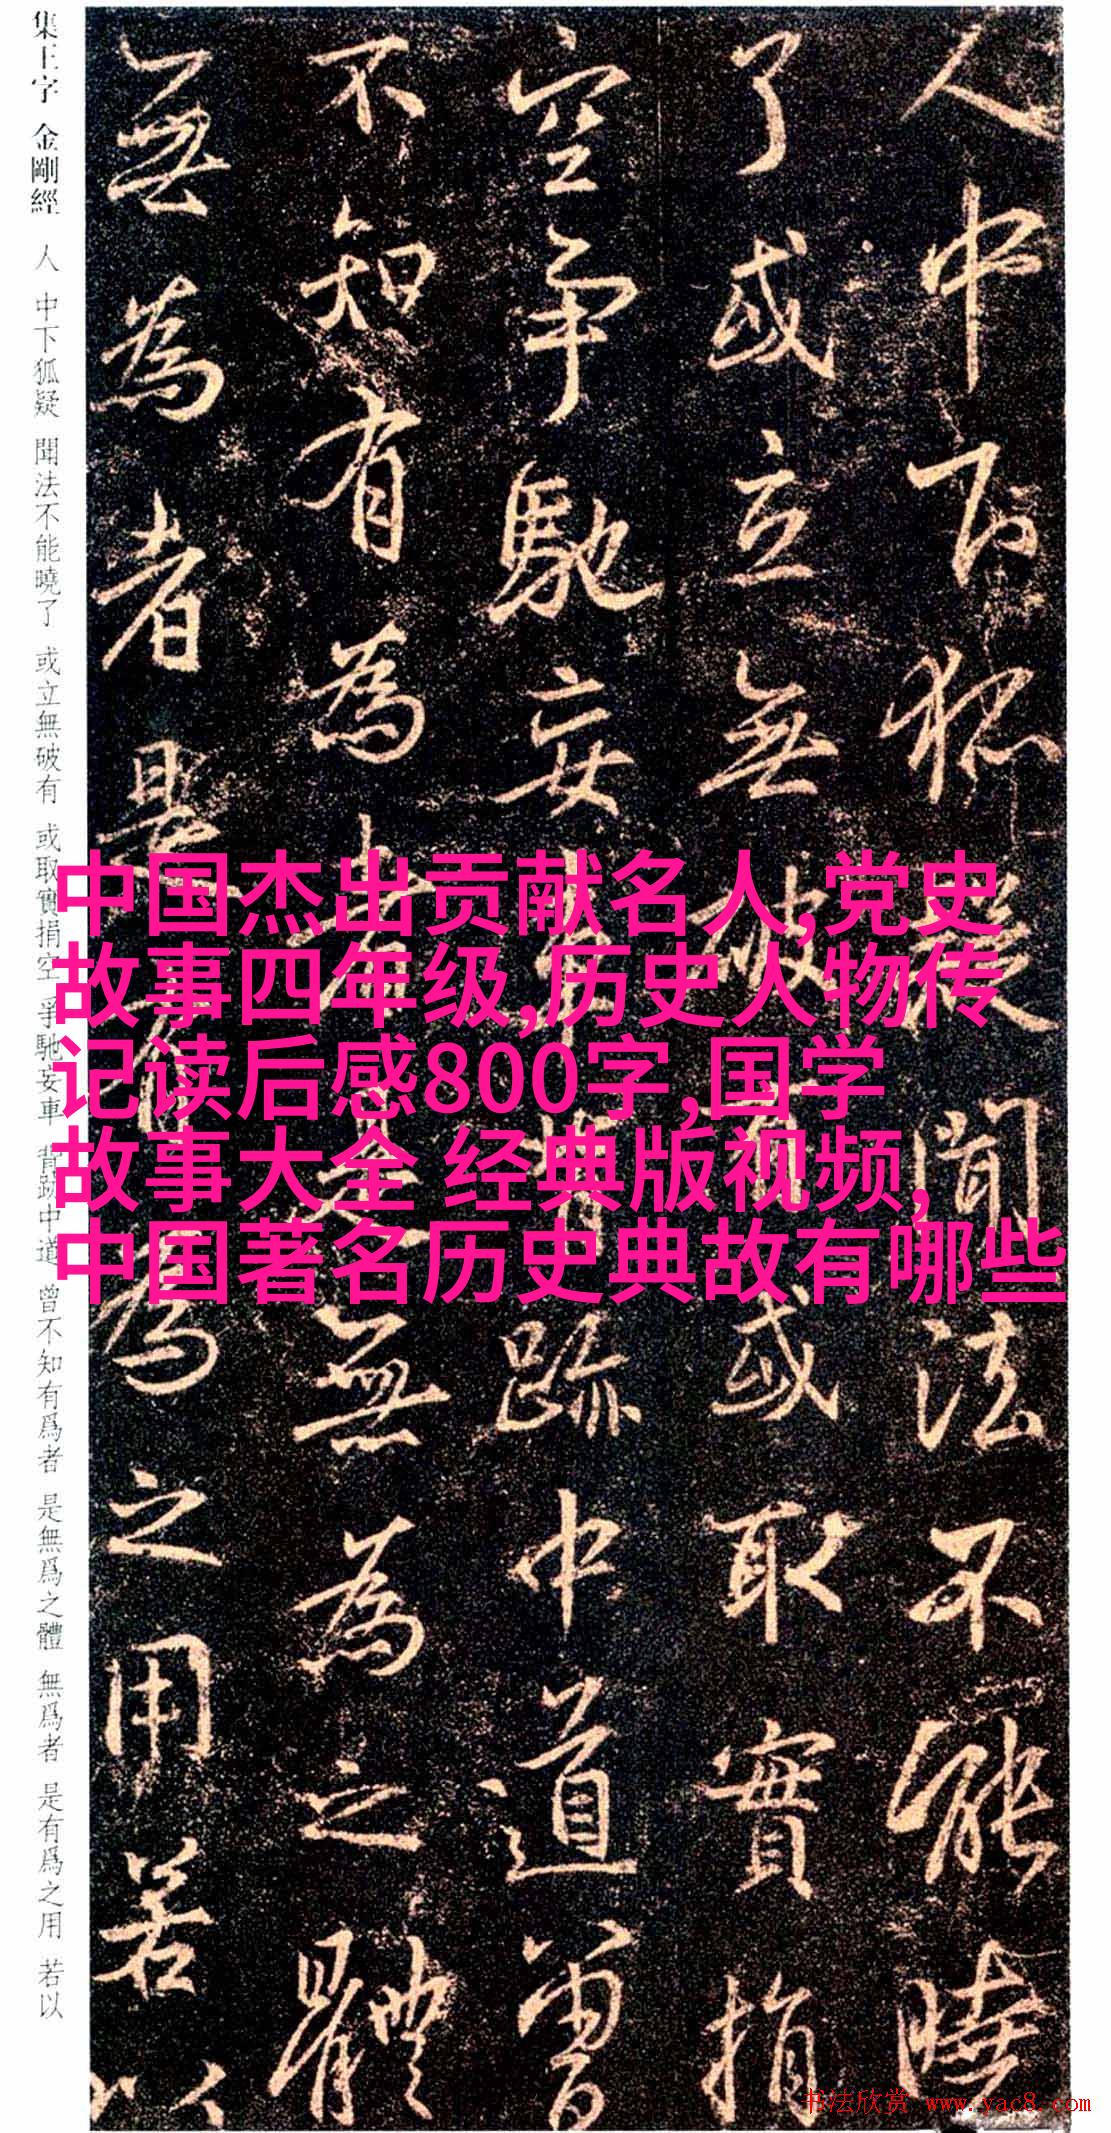 集王字 金剛經 人 中下狐疑 聞法不能曉了 或立無破有 或取實捐空 爭馳妄車 背跡中道 曾不知有爲者 是無爲之體 無爲者 是有爲之用 若以
人中下狐疑聞法不能曉
了或立無破有或取實捐
空爭馳妄車背跡中道曾
不知有為者是無為之體
無為者是有為之用若以
中国杰出贡献名人,党史
故事四年级,历史人物传
记读后感800字,国学
故事大全 经典版视频,
中国著名历史典故有哪些
书法欣赏 www.yac8.com